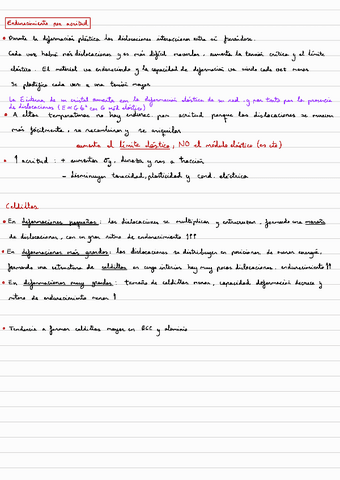 Endurecimiento por acritud
• Durante la deformación plástica las dislocaciones interaccionan entre sí
Cada vez habrá más dislocaciones y es más difícil moverlas. aumenta la tensión crítica y el límite
elástico. El material va endureciendo y la capacidad de deformación va siendo cada vez menor
Se plastifica cada vez a una tensión mayor
La E interna de un cristal aumenta con la deformación elástica de su red y por tanto por la presencia
de dislocaciones
• A altas temperaturas no hay endurec. por acritud porque las dislocaciones se mueven
más fácilmente, se reacomodan y se aniquilan
aumenta el límite elástico, NO el módulo elástico (es cte)
• ↑ acritud : + aumentar σy, dureza y res a tracción
- disminuyen tenacidad, plasticidad y cond. eléctrica
Celdillas
• En deformaciones pequeñas : las dislocaciones se multiplican y entrecruzan, formando una maraña
de dislocaciones, con un gran ritmo de endurecimiento ↑↑↑
• En deformaciones más grandes : las dislocaciones se distribuyen en posiciones de menor energía,
formando una estructura de celdillas en cuyo interior hay muy pocas dislocaciones. endurecimiento ↑↑
• En deformaciones muy grandes : tamaño de celdillas menor, capacidad deformación decrece y
ritmo de endurecimiento menor ↑
• Tendencia a formar celdillas mayor en BCC y aluminio